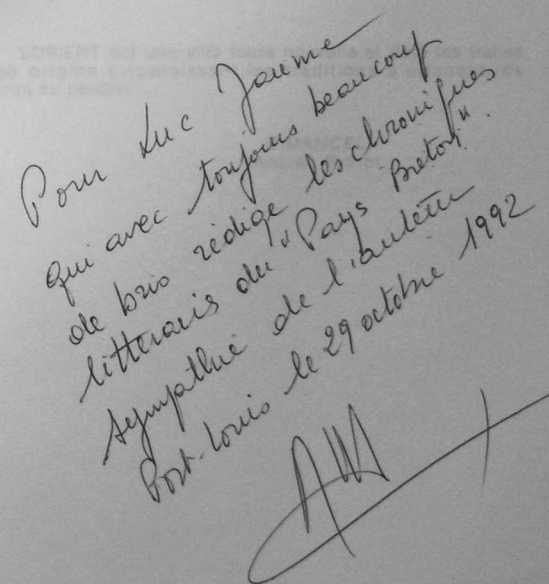 Pour Luc Jaume
qui avec toujours beaucoup
de brio rédige les chroniques
littéraires du "Pays Breton".
Sympathie de l'auteur
Port-Louis le 29 octobre 1992